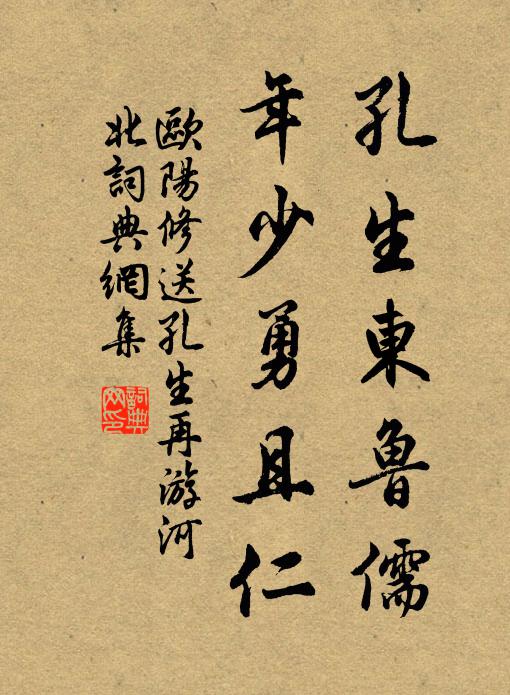 孔生東魯儒
年少勇且仁
歐陽修送孔生再游河
北詞典網集
詞典
网印